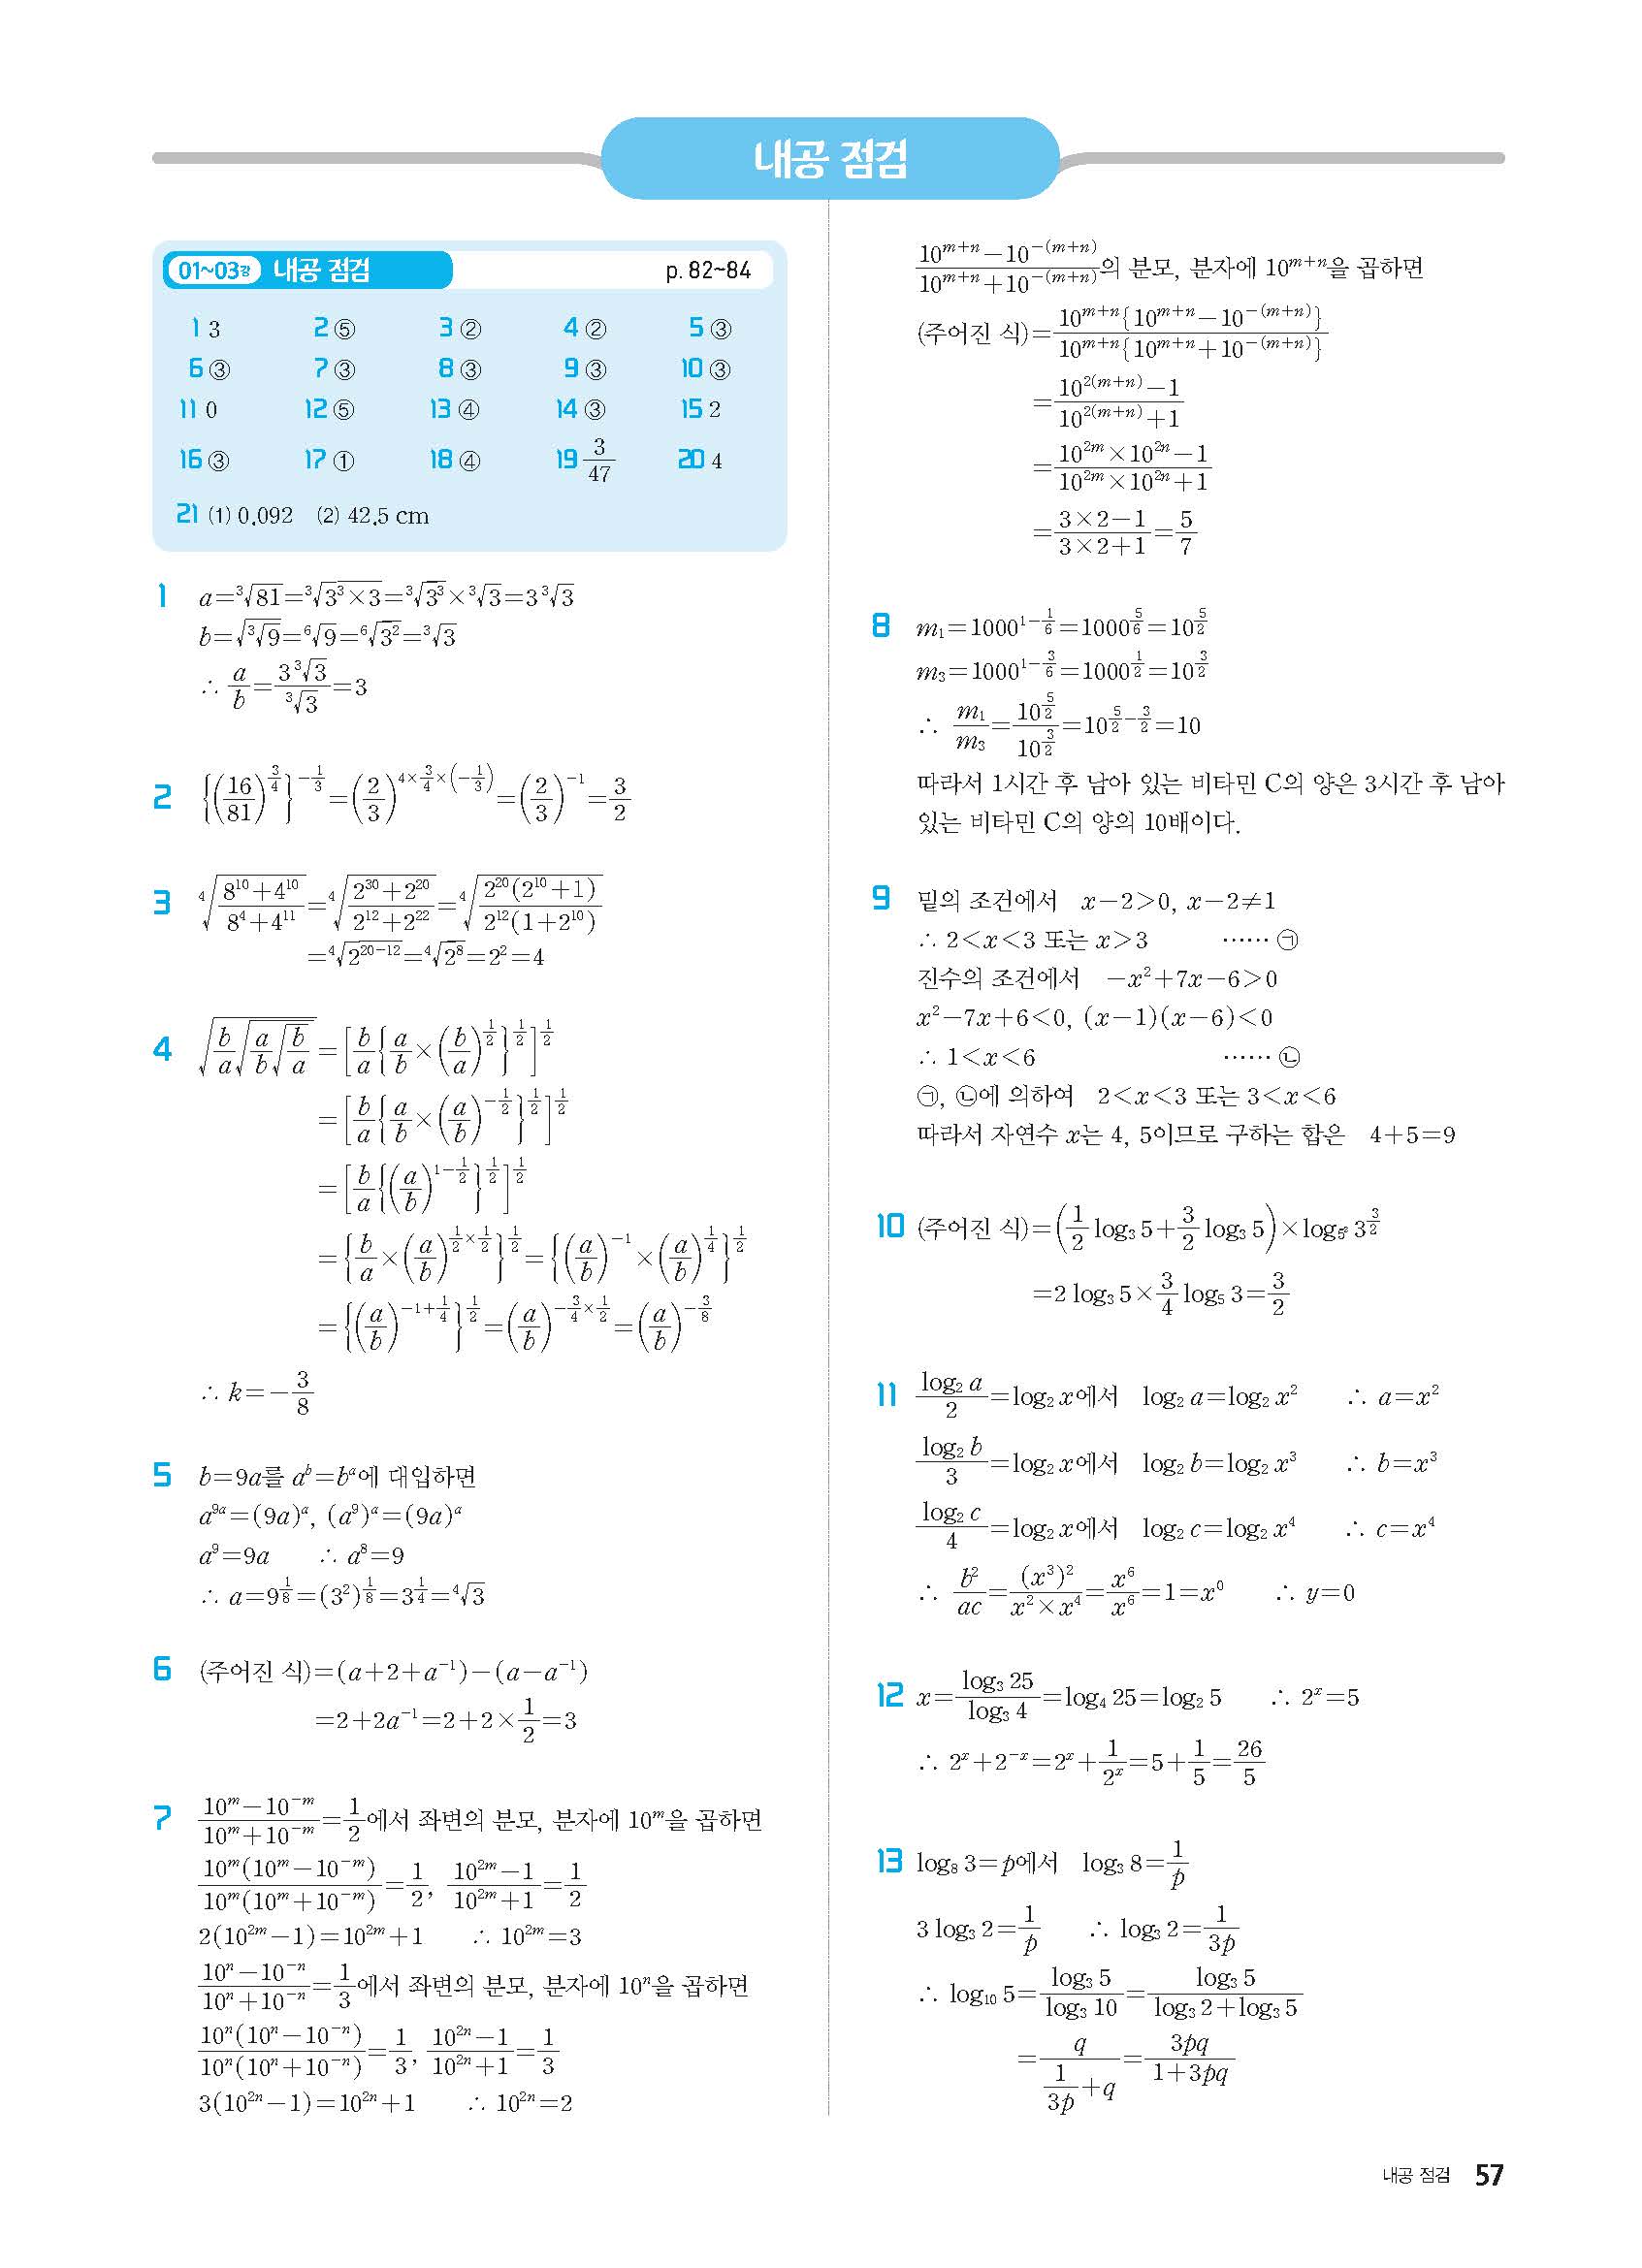 내공 점검
01~03강 내공 점검 p. 82~84
1 3 2 ⑤ 3 ② 4 ② 5 ③
6 ③ 7 ③ 8 ③ 9 ③ 10 ③
11 0 12 ⑤ 13 ④ 14 ③ 15 2
16 ③ 17 ① 18 ④ 19 3/47 20 4
21 ⑴ 0.092 ⑵ 42.5 cm
1 a=³√81=³√(3³×3)=³√3³×³√3=3³√3
b=√(³√9)=⁶√9=⁶√3²=³√3
∴ a/b=3³√3/³√3=3
2 {(16/81)^(3/4)}^(-1/3)=(2/3)^(4×3/4×(-1/3))=(2/3)^(-1)=3/2
3 ⁴√((8¹⁰+4¹⁰)/(8⁴+4¹¹))=⁴√((2³⁰+2²⁰)/(2¹²+2²²))=⁴√(2²⁰(2¹⁰+1)/2¹²(1+2¹⁰))
=⁴√2^(20-12)=⁴√2⁸=2²=4
4 √(b/a√(a/b√(b/a)))=[b/a{a/b×(b/a)^(1/2)}^(1/2)]^(1/2)
=[b/a{a/b×(a/b)^(-1/2)}^(1/2)]^(1/2)
=[b/a{(a/b)^(1-1/2)}^(1/2)]^(1/2)
={b/a×(a/b)^(1/2×1/2)}^(1/2)={(a/b)^(-1)×(a/b)^(1/4)}^(1/2)
={(a/b)^(-1+1/4)}^(1/2)=(a/b)^(-3/4×1/2)=(a/b)^(-3/8)
∴ k=-3/8
5 b=9a를 a^b=b^a에 대입하면
a^(9a)=(9a)^a, (a⁹)^a=(9a)^a
a⁹=9a ∴ a⁸=9
∴ a=9^(1/8)=(3²)^(1/8)=3^(1/4)=⁴√3
6 (주어진 식)=(a+2+a⁻¹)-(a-a⁻¹)
=2+2a⁻¹=2+2×1/2=3
7 (10^m-10^(-m))/(10^m+10^(-m))=1/2에서 좌변의 분모, 분자에 10^m을 곱하면
10^m(10^m-10^(-m))/10^m(10^m+10^(-m))=1/2, (10^(2m)-1)/(10^(2m)+1)=1/2
2(10^(2m)-1)=10^(2m)+1 ∴ 10^(2m)=3
(10^n-10^(-n))/(10^n+10^(-n))=1/3에서 좌변의 분모, 분자에 10^n을 곱하면
10^n(10^n-10^(-n))/10^n(10^n+10^(-n))=1/3, (10^(2n)-1)/(10^(2n)+1)=1/3
3(10^(2n)-1)=10^(2n)+1 ∴ 10^(2n)=2
(10^(m+n)-10^(-(m+n)))/(10^(m+n)+10^(-(m+n)))의 분모, 분자에 10^(m+n)을 곱하면
(주어진 식)=10^(m+n){10^(m+n)-10^(-(m+n))}/10^(m+n){10^(m+n)+10^(-(m+n))}
=(10^(2(m+n))-1)/(10^(2(m+n))+1)
=(10^(2m)×10^(2n)-1)/(10^(2m)×10^(2n)+1)
=(3×2-1)/(3×2+1)=5/7
8 m₁=1000^(1-1/6)=1000^(5/6)=10^(5/2)
m₃=1000^(1-3/6)=1000^(1/2)=10^(3/2)
∴ m₁/m₃=10^(5/2)/10^(3/2)=10^(5/2-3/2)=10
따라서 1시간 후 남아 있는 비타민 C의 양은 3시간 후 남아
있는 비타민 C의 양의 10배이다.
9 밑의 조건에서 x-2>0, x-2≠1
∴ 2<x<3 또는 x>3 …… ㉠
진수의 조건에서 -x²+7x-6>0
x²-7x+6<0, (x-1)(x-6)<0
∴ 1<x<6 …… ㉡
㉠, ㉡에 의하여 2<x<3 또는 3<x<6
따라서 자연수 x는 4, 5이므로 구하는 합은 4+5=9
10 (주어진 식)=(1/2 log₃ 5+3/2 log₃ 5)×log_(5²) 3^(3/2)
=2 log₃ 5×3/4 log₅ 3=3/2
11 log₂ a/2=log₂ x에서 log₂ a=log₂ x² ∴ a=x²
log₂ b/3=log₂ x에서 log₂ b=log₂ x³ ∴ b=x³
log₂ c/4=log₂ x에서 log₂ c=log₂ x⁴ ∴ c=x⁴
∴ b²/ac=(x³)²/(x²×x⁴)=x⁶/x⁶=1=x⁰ ∴ y=0
12 x=log₃ 25/log₃ 4=log₄ 25=log₂ 5 ∴ 2^x=5
∴ 2^x+2^(-x)=2^x+1/2^x=5+1/5=26/5
13 log₈ 3=p에서 log₃ 8=1/p
3 log₃ 2=1/p ∴ log₃ 2=1/3p
∴ log₁₀ 5=log₃ 5/log₃ 10=log₃ 5/(log₃ 2+log₃ 5)
=q/(1/3p+q)=3pq/(1+3pq)
내공 점검 57